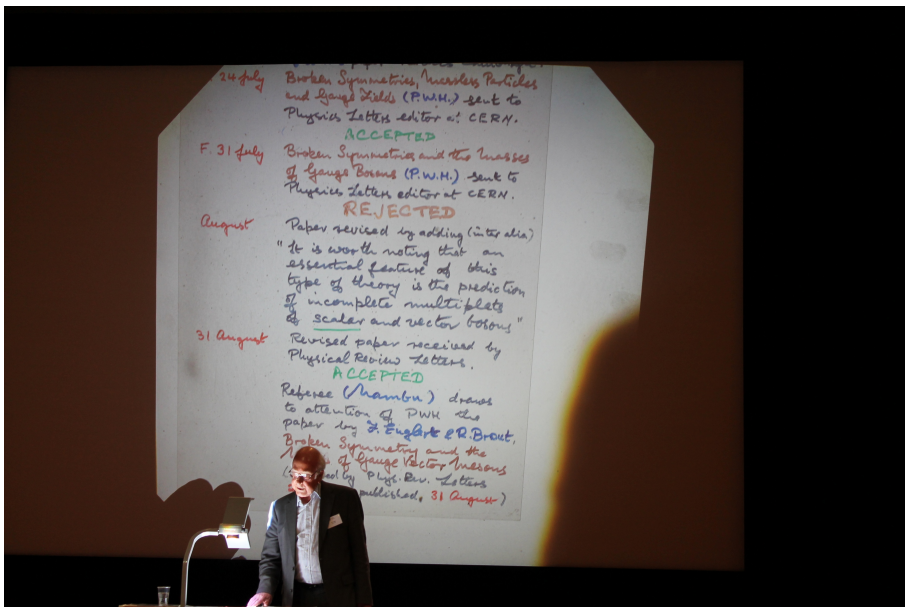 24 July Broken Symmetries, Massless Particles
and Gauge Fields (P.W.H.) sent to
Physics Letters editor at CERN.
ACCEPTED
F. 31 July Broken Symmetries and the Masses
of Gauge Bosons (P.W.H.) sent to
Physics Letters editor at CERN.
REJECTED
August Paper revised by adding (inter alia)
"It is worth noting that an
essential feature of this
type of theory is the prediction
of incomplete multiplets
of scalar and vector bosons"
31 August Revised paper received by
Physical Review Letters.
ACCEPTED
Referee (Nambu) draws
to attention of PWH the
paper by F. Englert & R. Brout,
Broken Symmetry and the
of Gauge Vector Mesons
by Phys. Rev. Letters
published, 31 August)